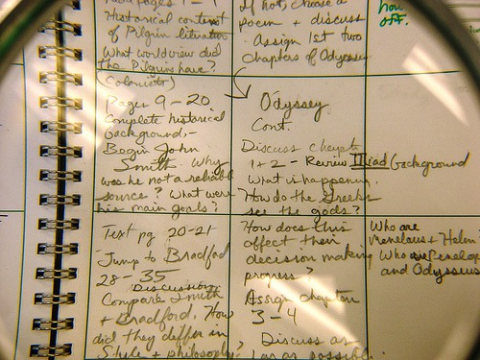 pages 1 -
Historical content
of Pilgrim literature
What worldview did
the Pilgrim have?
(Colonists)
Pages 9 - 20
Complete historical
background;-
Begin John
Smith. Why
was he not a reliable
source? What were
his main goals?
Text pg. 20-21
Jump to Bradford
28 - 35
Discussion
Compare Smith
+ Bradford. How
did they differ in
Style + philosophy?
If not, choose a
poem + discuss
Assign 1st two
chapters of Odyssey
Odyssey
Cont.
Discuss chapts
1 + 2 - Review Iliad background
What is happening.
How do the Greeks
see the gods?
How does this
affect their
decision making
progress?
Assign chapters
3 - 4
Discuss as
far as possible
how
off.
Who are
Menelaus + Helen
Who are Penelope
and Odysseus